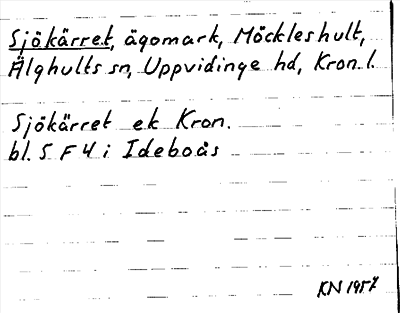 Sjökärret, ägomark, Möckleshult,
Älghults sn, Uppvidinge hd, Kron. l.
Sjökärret ek Kron.
bl. 5 F 4 i Ideboås
KN 1957